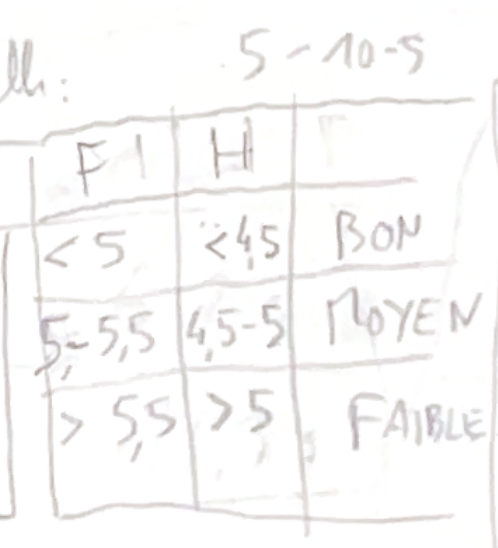 5-10-5
F H
<5 <4,5 BON
5-5,5 4,5-5 MOYEN
> 5,5 >5 FAIBLE